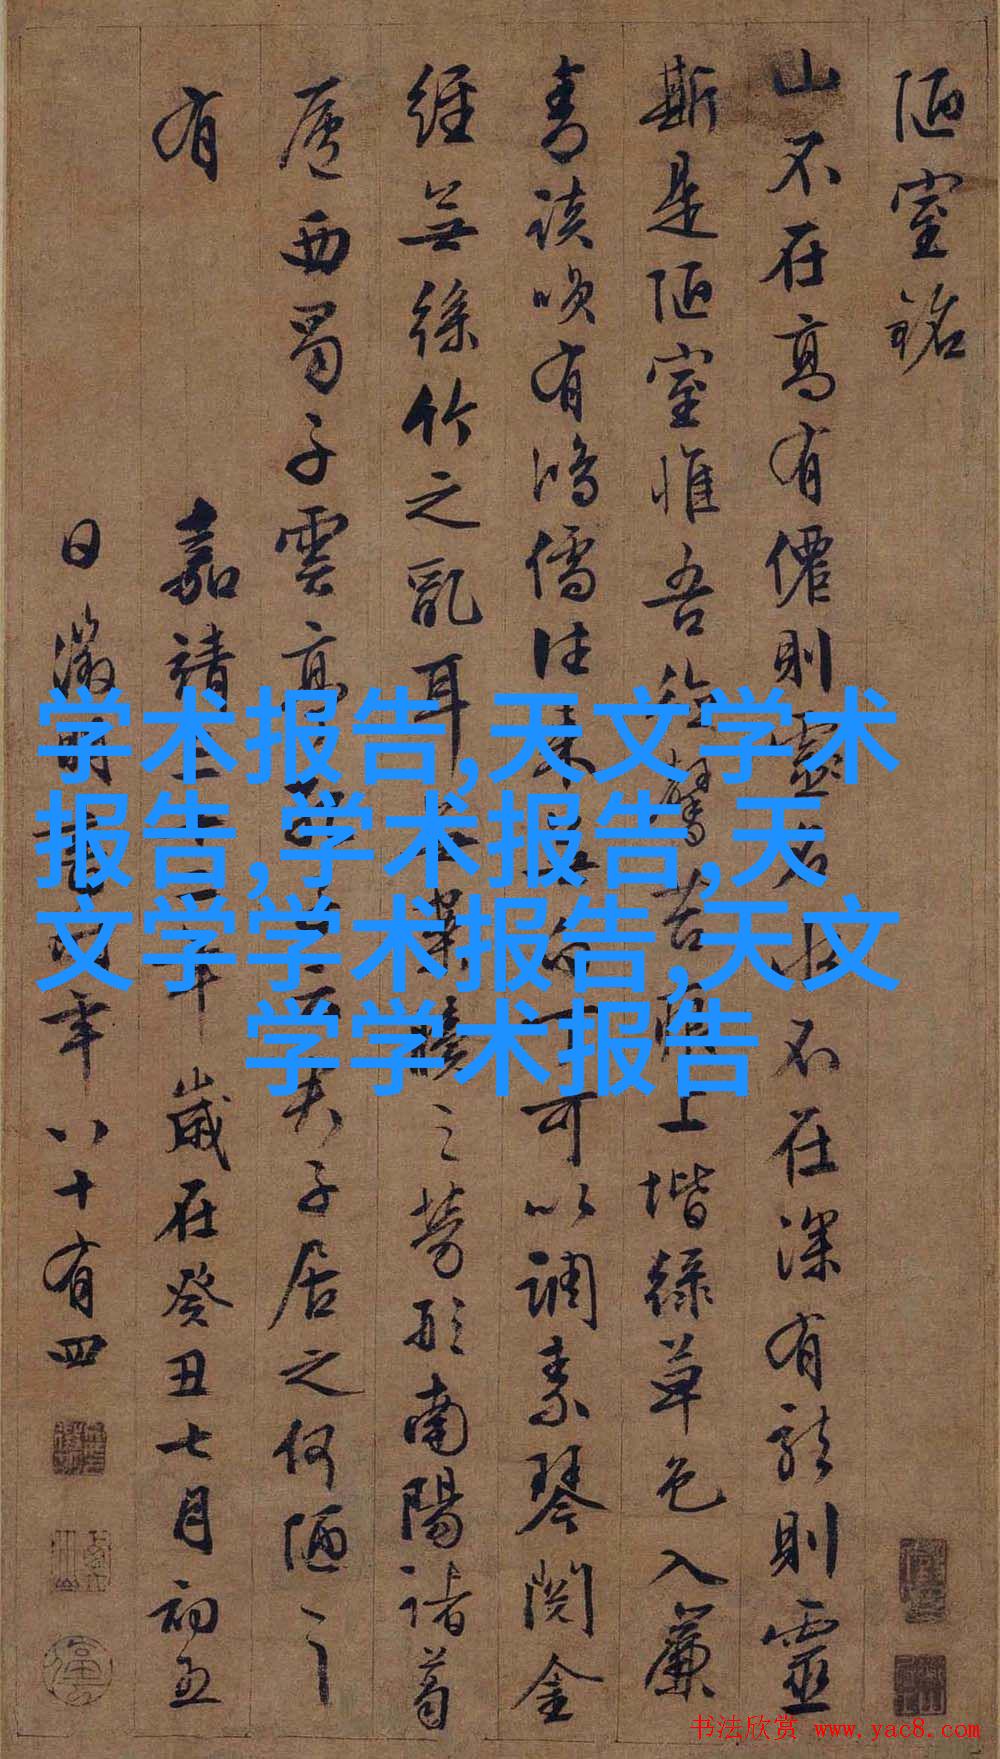 陋室銘
山不在高有僊則靈名水不在深有龍則靈
斯是陋室惟吾德馨苔痕上堦綠草色入簾
青談咲有鴻儒往来可以調素琴閱金
經無絲竹之亂耳無案牘之勞形南陽諸葛
廬西蜀子雲居之何陋之
有
嘉靖三十二年歲在癸丑七月初五
日徵明書時年八十有四
学术报告,天文学术
报告,学术报告,天
文学学术报告,天文
学学术报告
书法欣赏 www.yac8.com